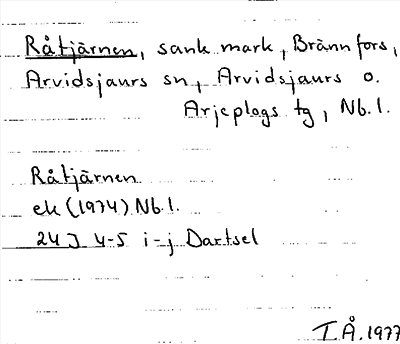 Råtjärnen, sank mark, Brännfors,
Arvidsjaurs sn, Arvidsjaurs o.
Arjeplogs tg, Nb.l.
Råtjärnen
ek (1974) Nb.l.
24J 4-5 i-j Dartsel
I.Å. 1977